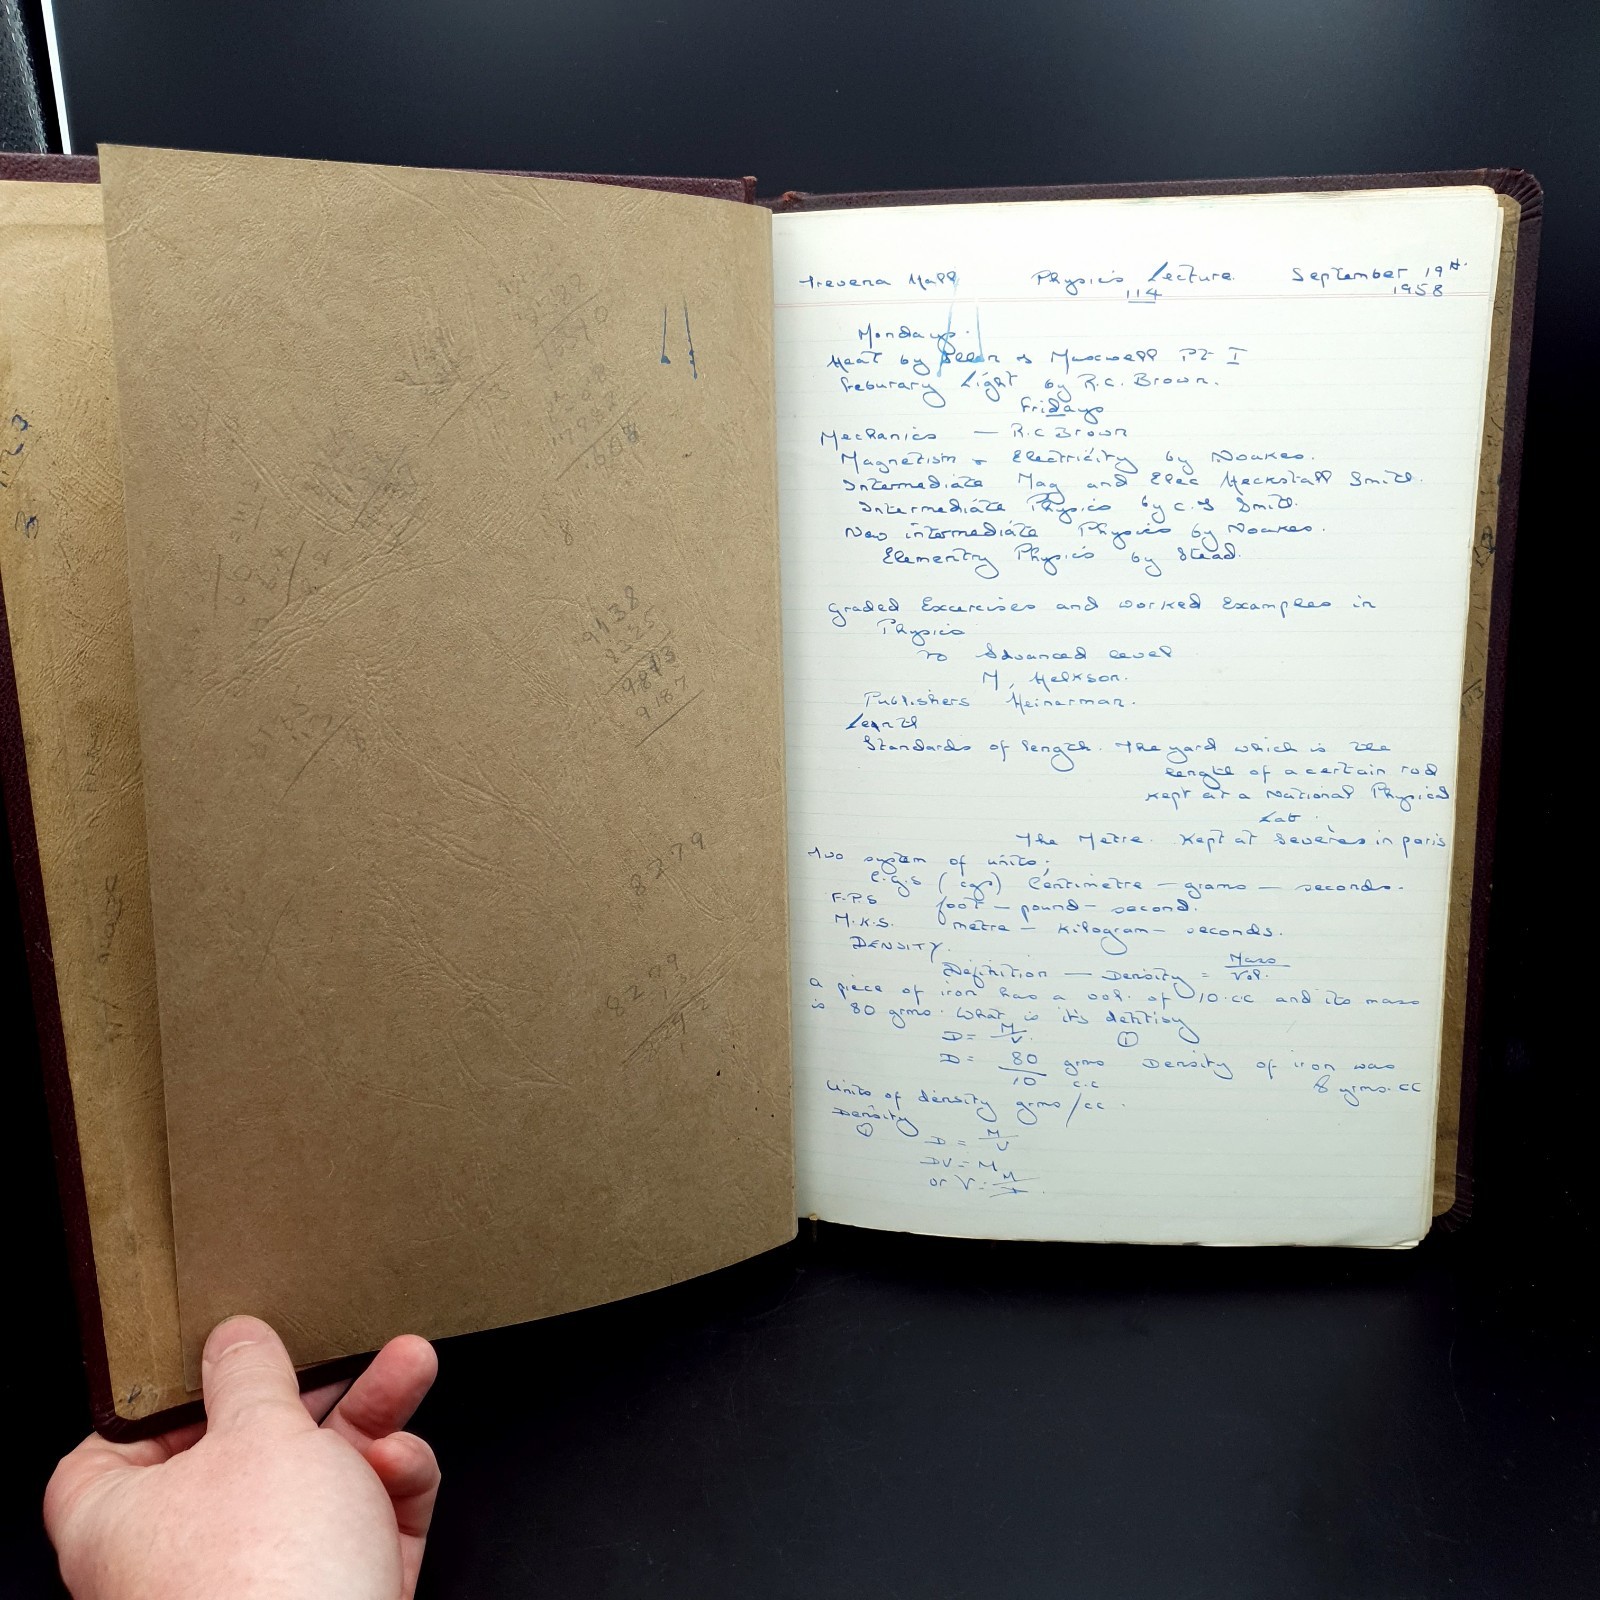 8279
8279
Trevena Hall Physics Lecture. September 19th.
114 1958
Mondays.
Heat by & Maxwell Pt I
Feburary Light by R.C. Brown.
Fridays
Mechanics — R.C Brown
Magnetism & Electricity by Noakes.
Intermediate Mag and Elec Heckstall Smith.
Intermediate Physics by C.J Smith.
New intermediate Physics by Noakes.
Elementry Physics by Stead.
Graded Excercises and worked Examples in
Physics
to Advanced level
M. Nelkson.
Publishers Heinerman.
Lenth
Standards of length. The yard which is the
length of a certain rod
kept at a National Physical
Lab.
The Metre. Kept at Severes in paris
Two system of units;
C.G.S (cgs) Centimetre — grams — seconds.
F.P.S foot — pound — second.
M.K.S. metre — kilogram — seconds.
DENSITY.
Definition — Density = Mass/Vol.
a piece of iron has a vol. of 10.cc and its mass
is 80 grms. What is it's
D = M/V. ①
D = 80/10 grms c.c Density of iron was
8 grms.cc
Units of density grms/cc.
Density
① D = M/V
DV = M
or V = M/D.